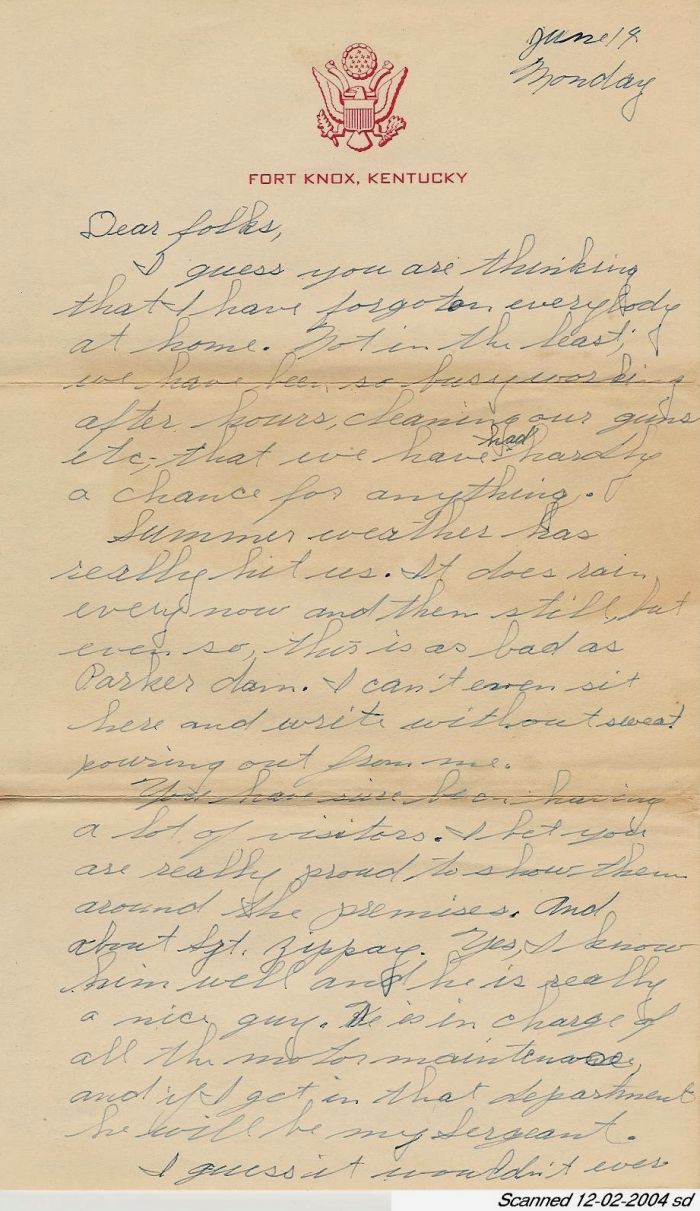 June 19
Monday
FORT KNOX, KENTUCKY
Dear folks,
I guess you are thinking
that I have forgoten everybody
at home. Not in the least;
we have been so busy working
after hours, cleaning our guns
etc, that we have had hardly
a chance for anything.
Summer weather has
really hit us. It does rain
every now and then still, but
even so, this is as bad as
Parker dam. I can't even sit
here and write without sweat
pouring out from me.
You have sure been having
a lot of visitors. I bet you
are really proud to show them
around the premises. And
about Sgt. Zippay. Yes, I know
him well and he is really
a nice guy. He is in charge of
all the motor maintenance,
and if I get in that department
he will be my sergeant.
I guess it wouldn't ever
Scanned 12-02-2004 sd